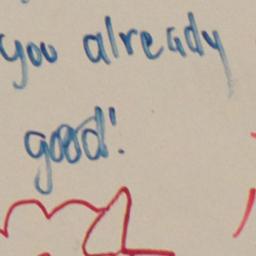 you already
good!